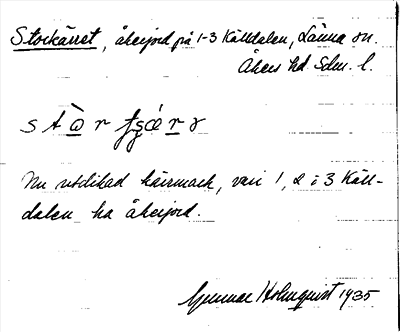 Storkärret, åkerjord på 1-3 Källdalen, Länna sn.
Åkers hd Sdm. l.
Nu utdikad kärrmark, vari 1, 2 o 3 Käll-
dalen ha åkerjord.
Gunnar Holmquist 1935